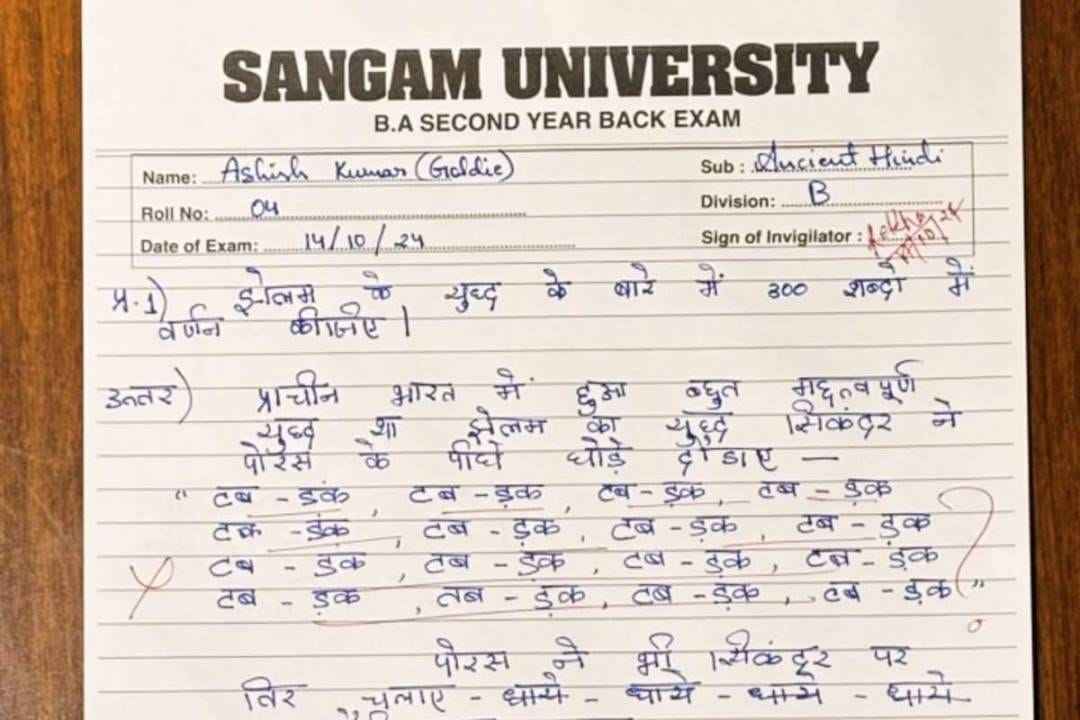 SANGAM UNIVERSITY
B.A SECOND YEAR BACK EXAM
Name: Ashish Kumar (Goldie) Sub : Ancient Hindi
Roll No: 04 Division: B
Date of Exam: 14/10/24 Sign of Invigilator :
प्र.1) झेलम के युध्द के बारे में 300 शब्दो में
वर्णन कीजिए |
उत्तर) प्राचीन भारत में हुआ बहुत महत्वपूर्ण
युध्द था झेलम का युध्द सिकंदर ने
पोरस के पीछे घोड़े दौडाए —
" टब - डंक , टब - ड़क , टब - ड़क , टब - डक
टक - डंक , टब - ड़क , टब - ड़क , टब - ड़क
टब - डक , टब - डक , टब - ड़क , टब - ड़क
टब - ड़क , तब - ड़क , टब - ड़क , टब - ड़क "
?
पोरस ने भी सिकंदर पर
तिर चलाए - धाये - धाये - धाये - धाये